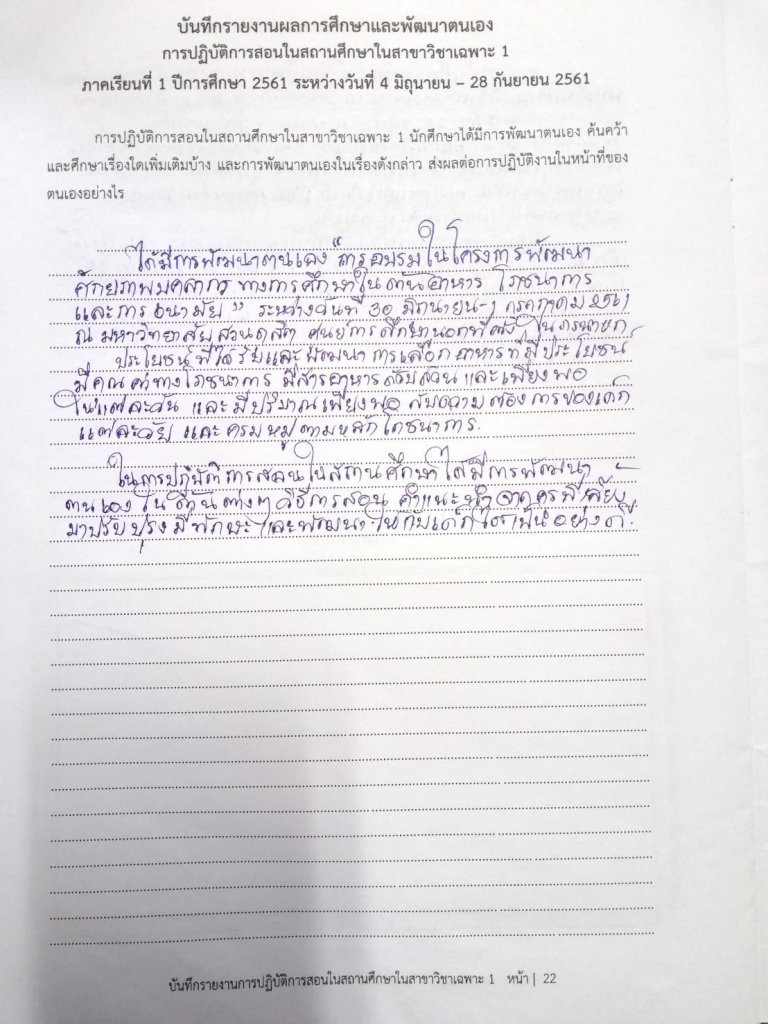 บันทึกรายงานผลการศึกษาและพัฒนาตนเอง
การปฏิบัติการสอนในสถานศึกษาในสาขาวิชาเฉพาะ 1
ภาคเรียนที่ 1 ปีการศึกษา 2561 ระหว่างวันที่ 4 มิถุนายน – 28 กันยายน 2561
การปฏิบัติการสอนในสถานศึกษาในสาขาวิชาเฉพาะ 1 นักศึกษาได้มีการพัฒนาตนเอง ค้นคว้า
และศึกษาเรื่องใดเพิ่มเติมบ้าง และการพัฒนาตนเองในเรื่องดังกล่าว ส่งผลต่อการปฏิบัติงานในหน้าที่ของ
ตนเองอย่างไร
ได้มีการพัฒนาตนเอง "การอบรมในโครงการพัฒนา
ศักยภาพบุคลากร ทางการศึกษาในด้านอาหาร โภชนาการ
และการอนามัย" ระหว่างวันที่ 30 มิถุนายน-1 กรกฎาคม 2561
ณ มหาวิทยาลัยสวนดุสิต ศูนย์การศึกษานอกที่ตั้ง นครนายก
ประโยชน์ที่ได้รับและพัฒนา การเลือกอาหารที่มีประโยชน์
มีคุณค่าทางโภชนาการ มีสารอาหารครบถ้วน และเพียงพอ
ในแต่ละวัน และมีปริมาณเพียงพอ กับความต้องการของเด็ก
แต่ละวัย และครบหมู่ตามหลักโภชนาการ.
ในการปฏิบัติการสอนในสถานศึกษาได้มีการพัฒนา
ตนเองในด้านต่างๆ วิธีการสอน คำแนะนำจากครูพี่เลี้ยง
มาปรับปรุง มีทักษะ และพัฒนา ให้กับเด็กได้เป็นอย่างดี.
บันทึกรายงานการปฏิบัติการสอนในสถานศึกษาในสาขาวิชาเฉพาะ 1 หน้า | 22